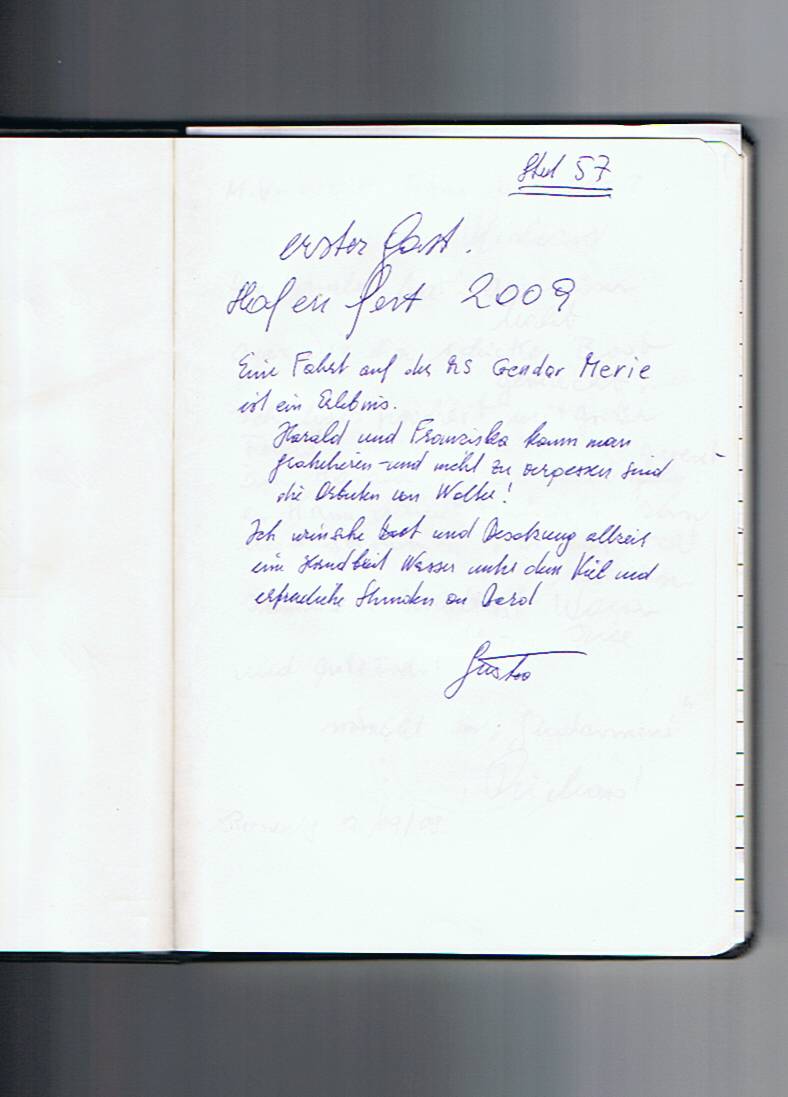 57
erster Gast.
Hafenfest 2009
Eine Fahrt auf der MS Gendar Merie
ist ein Erlebnis.
Harald und Franziska kann man
gratulieren - und nicht zu vergessen sind
die von
Ich wünsche Boot und Besatzung allzeit
eine Handbreit Wasser unter dem Kiel und
erfreuliche Stunden an Bord